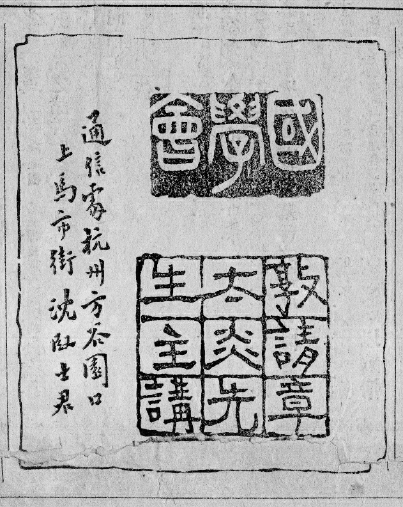 國學會
敦請章
太炎先
生主講
通信處杭州方谷園口
上馬市街沈歐士君